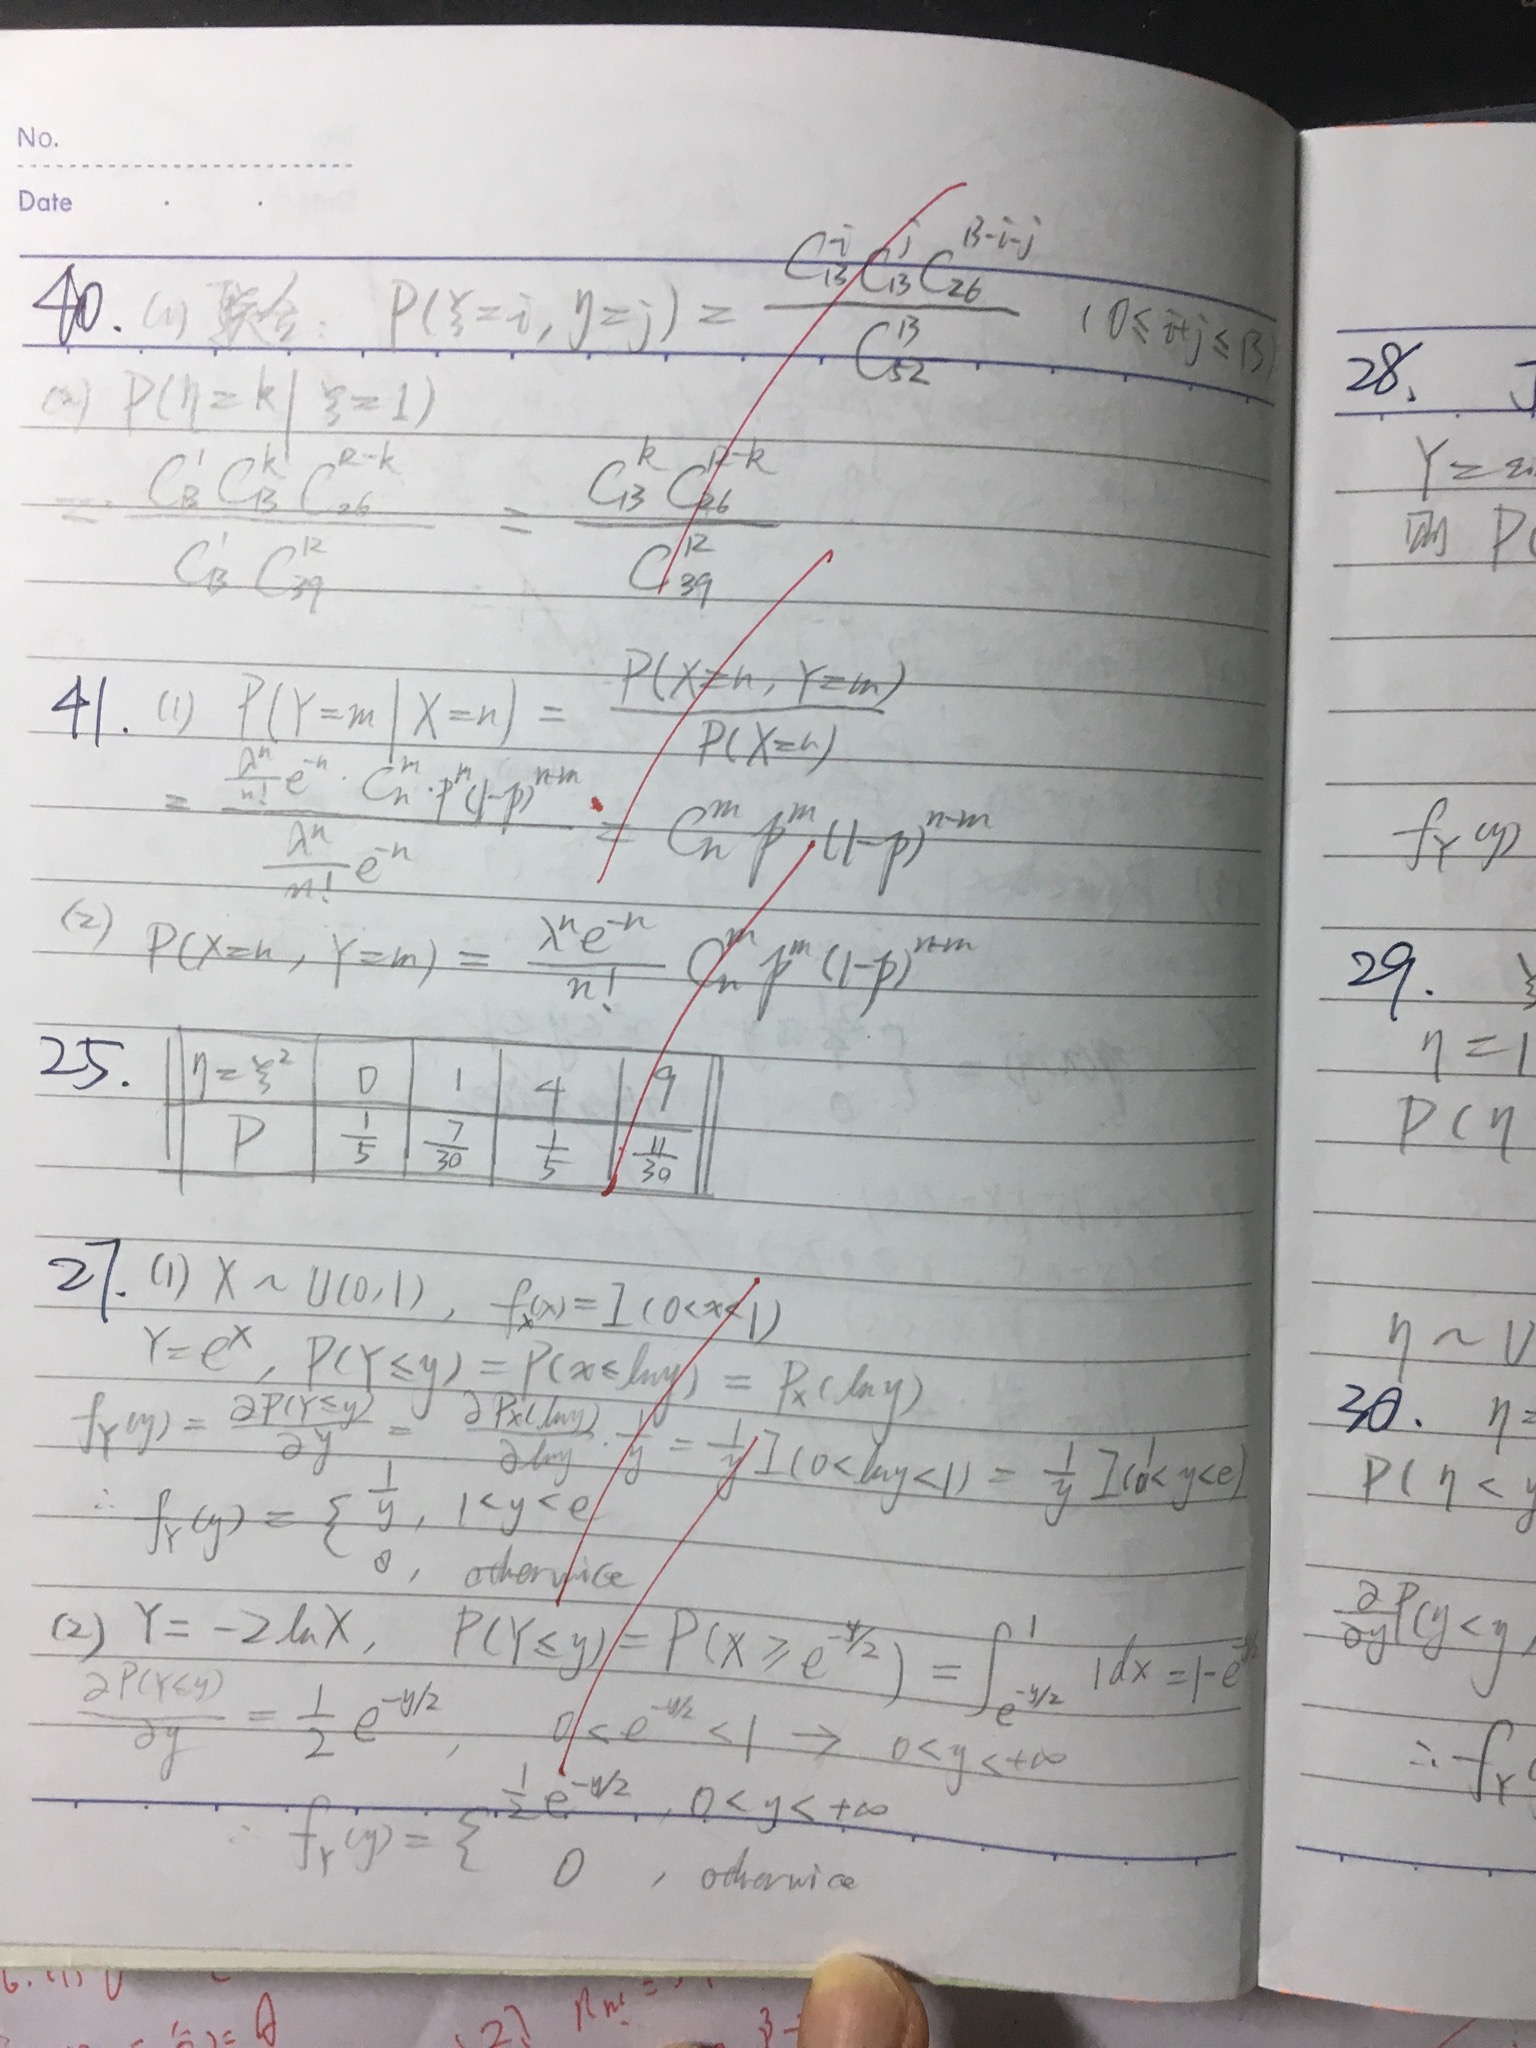 No.
Date
40. (1) 联合: P(ξ=i, η=j) = C₁₃ⁱ C₁₃ʲ C₂₆¹³⁻ⁱ⁻ʲ / C₅₂¹³ (0≤i+j≤13)
(2) P(η=k | ξ=1)
= C₁₃¹ C₁₃ᵏ C₂₆¹²⁻ᵏ / C₁₃¹ C₃₉¹² = C₁₃ᵏ C₂₆¹²⁻ᵏ / C₃₉¹²
41. (1) P(Y=m | X=n) = P(X=n, Y=m) / P(X=n)
= (λⁿ/n! e⁻ⁿ · Cₙᵐ · pᵐ(1-p)ⁿ⁻ᵐ) / (λⁿ/n! e⁻ⁿ) = Cₙᵐ pᵐ (1-p)ⁿ⁻ᵐ
(2) P(X=n, Y=m) = λⁿe⁻ⁿ/n! Cₙᵐ pᵐ (1-p)ⁿ⁻ᵐ
25. η=ξ² 0 1 4 9
P 1/5 7/30 1/5 11/30
27. (1) X ~ U(0,1), f_X(x) = I(0<x<1)
Y=e^X, P(Y≤y) = P(x≤lny) = P_X(lny)
f_Y(y) = ∂P(Y≤y)/∂y = ∂P_X(lny)/∂lny · 1/y = 1/y I(0<lny<1) = 1/y I(1<y<e)
∴ f_Y(y) = { 1/y, 1<y<e
0, otherwise
(2) Y = -2lnX, P(Y≤y) = P(X≥e^(-y/2)) = ∫_{e^(-y/2)}^1 1dx = 1-e^(-y/2)
∂P(Y≤y)/∂y = 1/2 e^(-y/2), 0<e^(-y/2)<1 → 0<y<+∞
∴ f_Y(y) = { 1/2 e^(-y/2), 0<y<+∞
0, otherwise
28.
Y=
则 P(
f_Y(y)
29. ξ
η=1
P(η
η~U
30. η=
P(η<y
∂/∂y P(y<y
∴ f_Y(